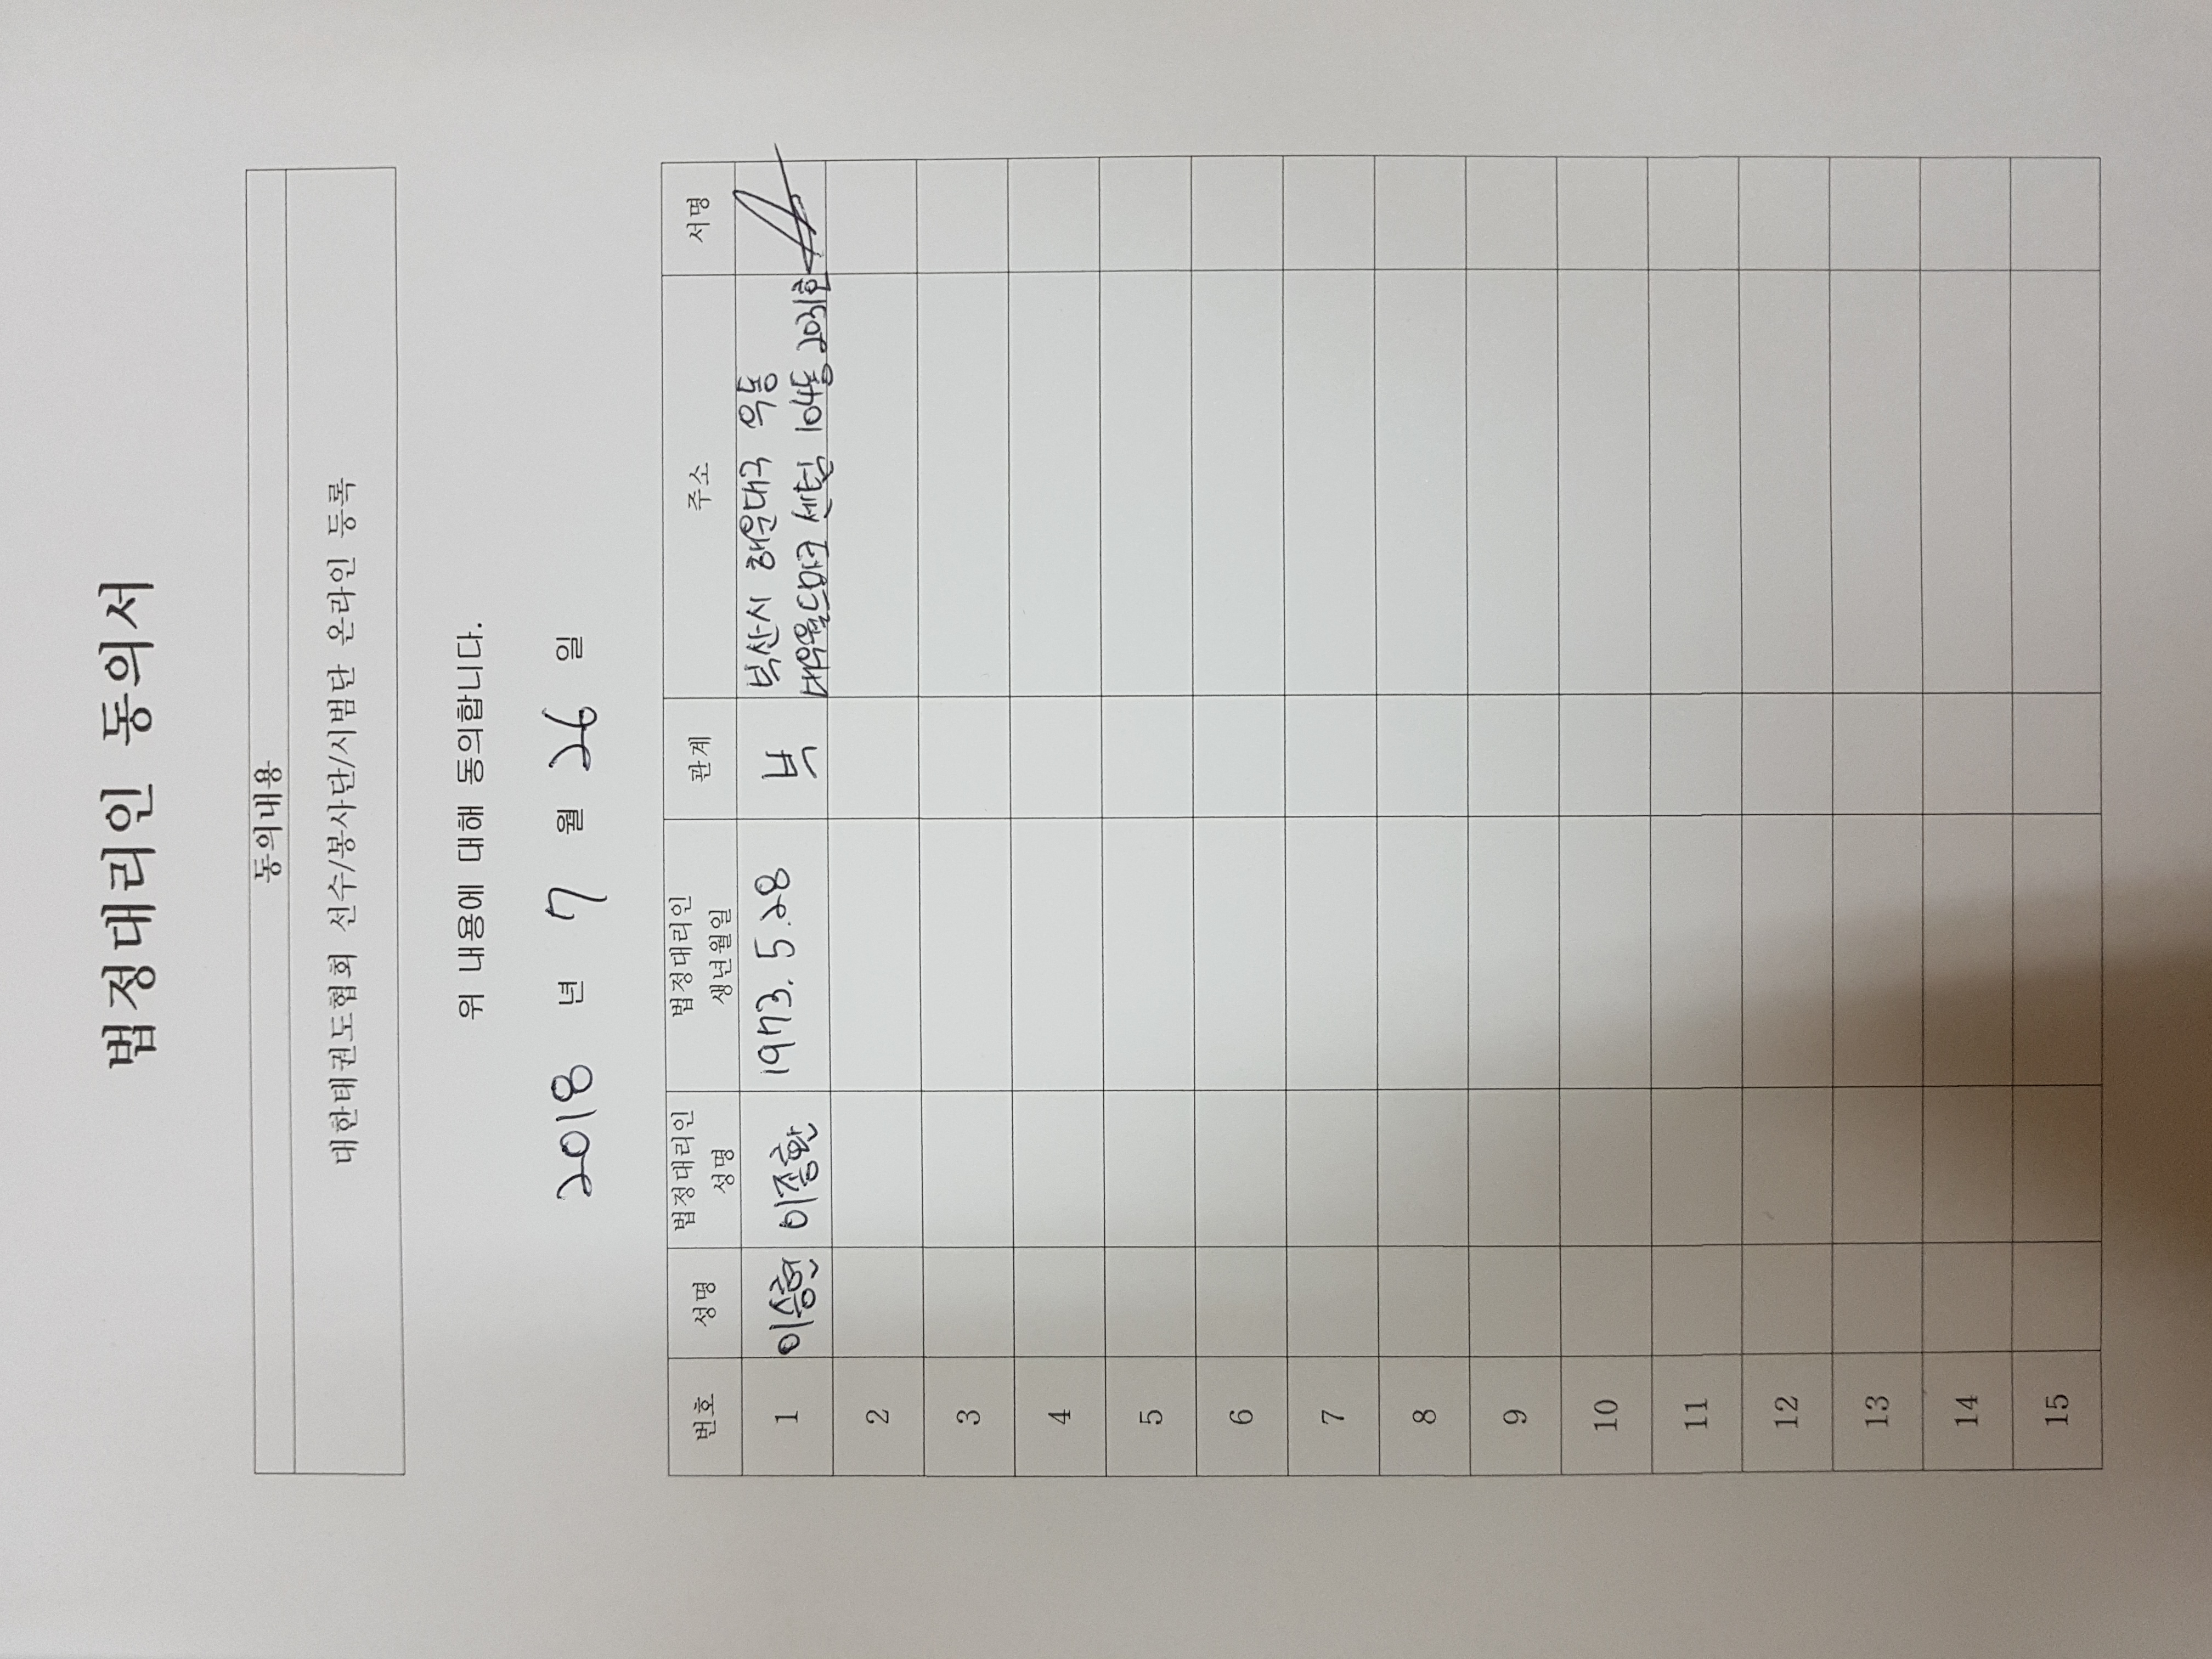 법정대리인 동의서
동의내용
대한태권도협회 선수/봉사단/시범단 온라인 등록
위 내용에 대해 동의합니다.
2018 년 7 월 26 일
번호 성명 법정대리인 성명 법정대리인 생년월일 관계 주소 서명
1 이승현 이종환 1973. 5. 28 부 부산시 해운대구 우동
대우월드마크 센텀 104동 2031호
2
3
4
5
6
7
8
9
10
11
12
13
14
15